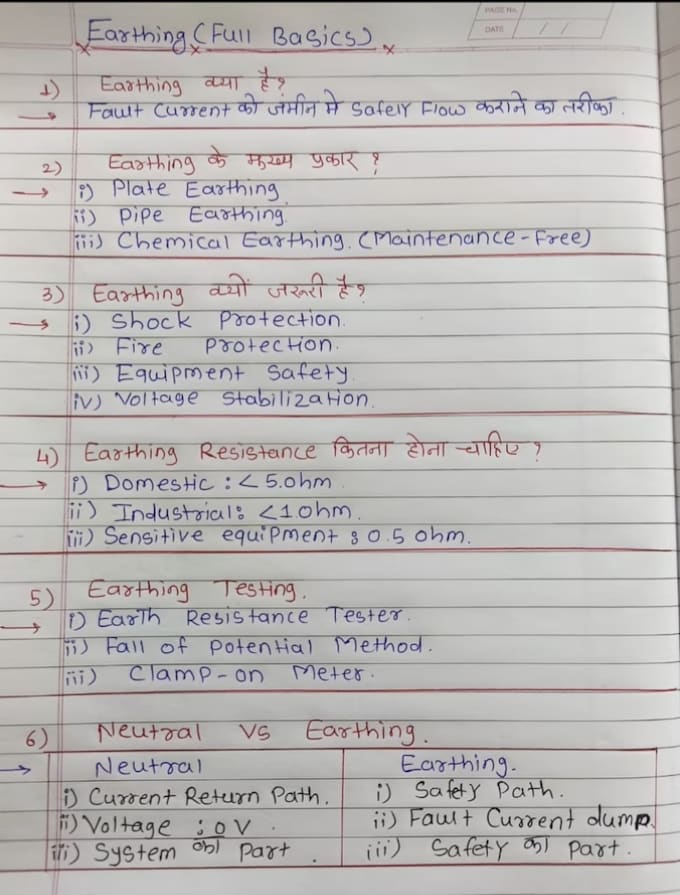 PAGE No.
DATE / /
Earthing (Full Basics)
1) Earthing क्या है?
→ Fault Current को जमीन मे Safely Flow कराने का तरीका.
2) Earthing के मुख्य प्रकार?
→ i) Plate Earthing
ii) Pipe Earthing.
iii) Chemical Earthing. (Maintenance-Free)
3) Earthing क्यों जरूरी है?
→ i) Shock Protection.
ii) Fire Protection.
iii) Equipment Safety.
iv) Voltage Stabilization.
4) Earthing Resistance कितना होना चाहिए?
→ i) Domestic : < 5.ohm.
ii) Industrial: <1 ohm.
iii) Sensitive equipment : 0.5 ohm.
5) Earthing Testing.
→ i) Earth Resistance Tester.
ii) Fall of Potential Method.
iii) Clamp-on Meter.
6) Neutral VS Earthing.
→ Neutral
i) Current Return Path.
ii) Voltage : 0 V.
iii) System का Part.
Earthing.
i) Safety Path.
ii) Fault Current dump.
iii) Safety का Part.